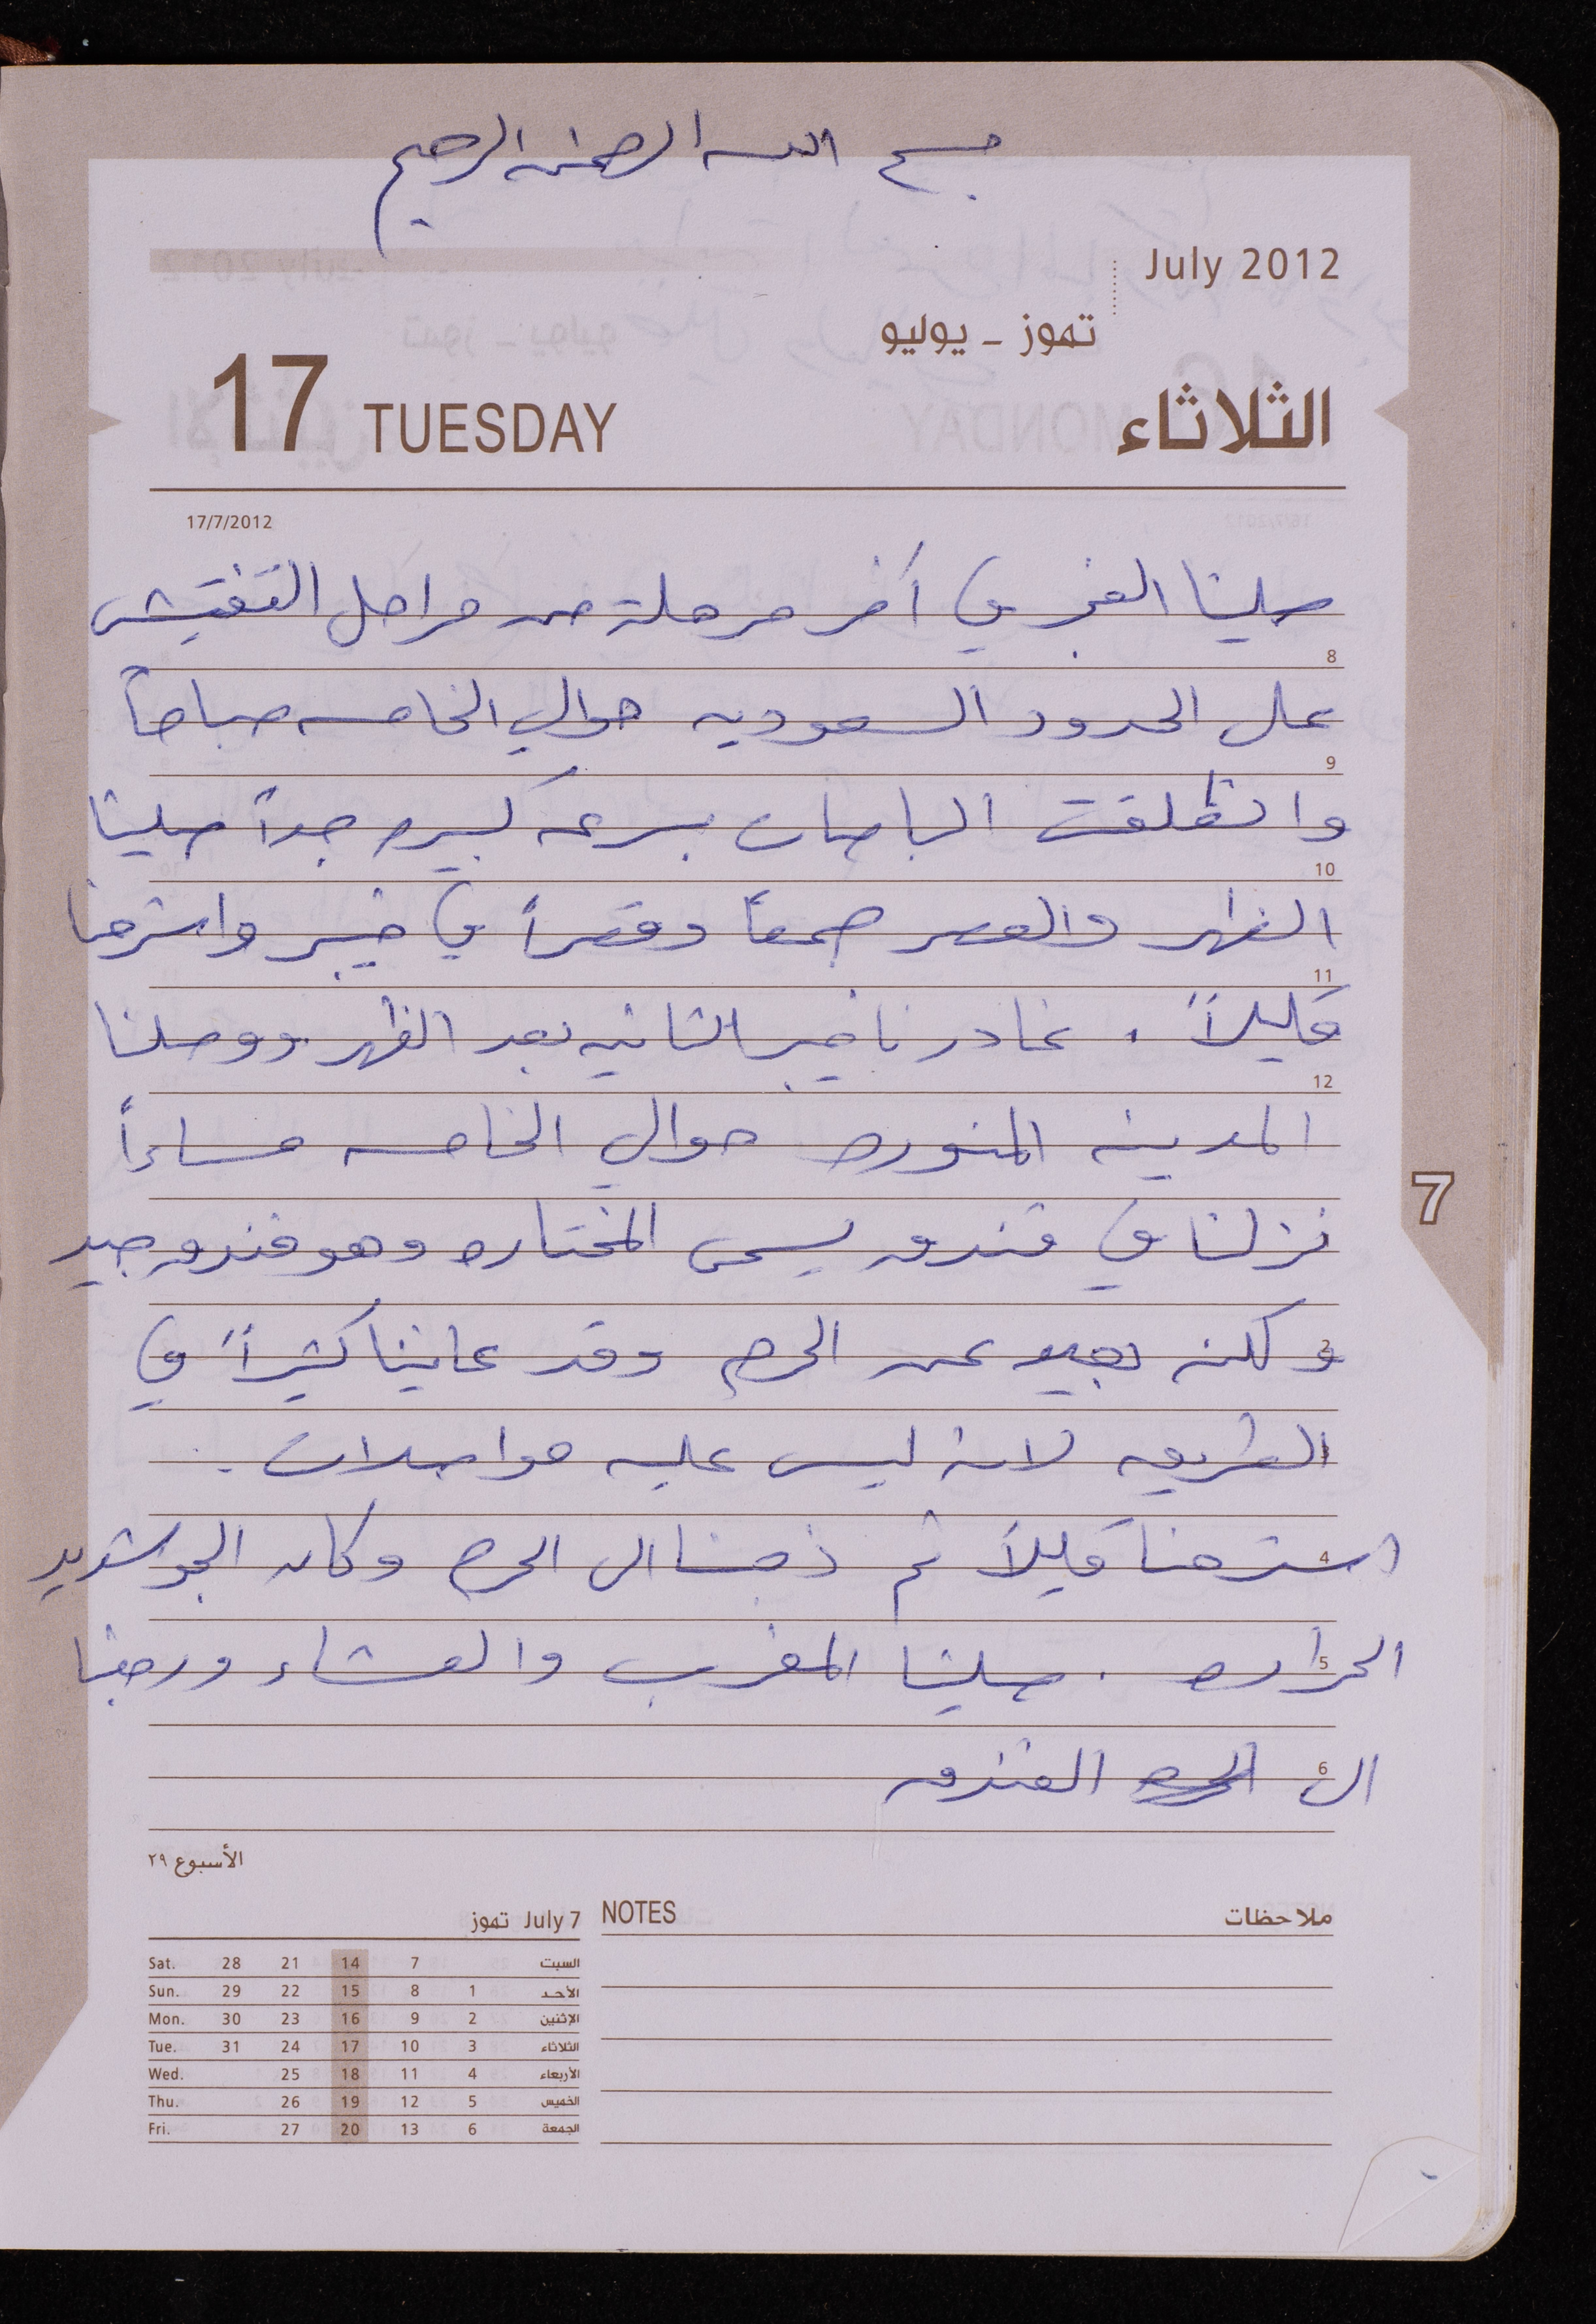 بسم الله الرحمن الرحيم
July 2012
تموز - يوليو
17 TUESDAY الثلاثاء
17/7/2012
صلينا الفجر في آخر مرحلة من مراحل التفتيش
8
على الحدود السعوديه حوالي الخامسه صباحاً
9
وانطلقت الباصات بسرعه كبيره جداً صلينا
10
الظهر والعصر جمعاً وقصراً في خيبر واسترحنا
11
قليلاً . غادرنا خيبر الثانيه بعد الظهر ووصلنا
12
المدينه المنوره حوالي الخامسه مساءاً
7
نزلنا في فندق يسمى المختاره وهو فندق جيد
ولكنه بعيد عن الحرم وقد عانينا كثيراً في
2
الطريق لانه ليس عليه مواصلات .
3
استرحنا قليلاً ثم ذهبنا الى الحرم وكان الجو شديد
4
الحراره . صلينا المغرب والعشاء ورجعنا
5
الى الفندق
6
الأسبوع ٢٩
تموز July 7
Sat. 28 21 14 7 السبت
Sun. 29 22 15 8 1 الأحد
Mon. 30 23 16 9 2 الإثنين
Tue. 31 24 17 10 3 الثلاثاء
Wed. 25 18 11 4 الأربعاء
Thu. 26 19 12 5 الخميس
Fri. 27 20 13 6 الجمعة
NOTES ملاحظات